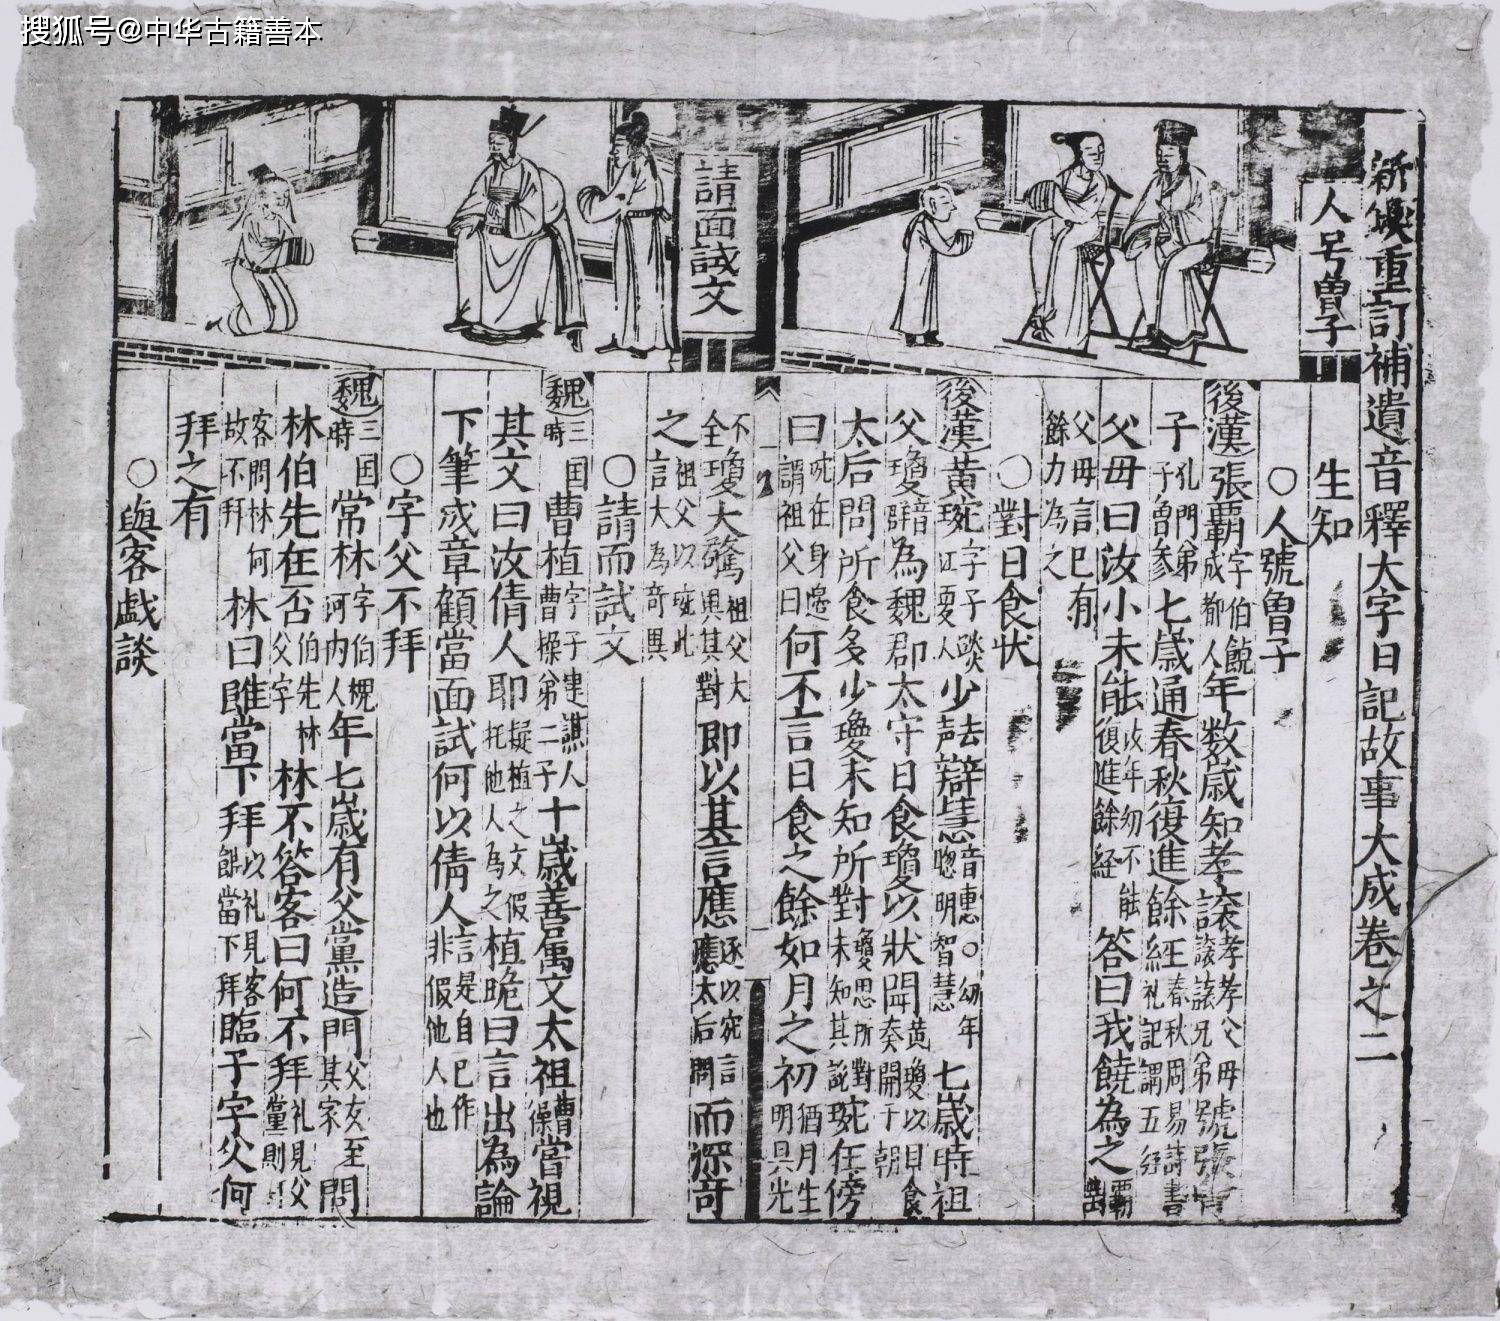 搜狐号@中华古籍善本
新鍥重訂補遺音釋大字日記故事大成卷之二
人号曾子
請面試文
生知
○人號曾子
後漢張霸字伯饒成都人年数歲知孝讓孝孝父母讓讓兄弟號張曾
子孔門弟子曾參七歲通春秋復進餘經春秋周易詩書礼記謂五经
父母曰汝小未能汝年幼不能復進餘経答曰我饒為之霸
父母言已有餘力為之
○對日食状
後漢黃琬字子琰江夏人少去声辯慧音惠○幼年聰明智慧七歲時祖
父瓊音群為魏郡太守日食瓊以狀聞黃瓊以日食奏聞于朝
太后問所食多少瓊未知所對瓊思所對未知其說琬在傍
曰琬在身邊謂祖父曰何不言日食之餘如月之初猶月生明具光
不全瓊大驚祖父大異其對即以其言應遂以琬言應太后問而深奇
之祖父以琬此言大為奇異
○請面試文
魏三国時曹植字子建譙人曹操第二子十歲善属文太祖曹操嘗視
其文曰汝倩人耶擬植之文假托他人為之植跪曰言出為論
下筆成章顧當面試何以倩人言是自已作非假他人也
○字父不拜
魏三国時常林字伯槐河内人年七歲有父黨造門父友至其家問
林伯先在否伯先林父字林不答客曰何不拜礼見父黨則拜
客問林何故不拜林曰雖當下拜以礼見客雖當下拜臨子字父何
拜之有
○與客戯談